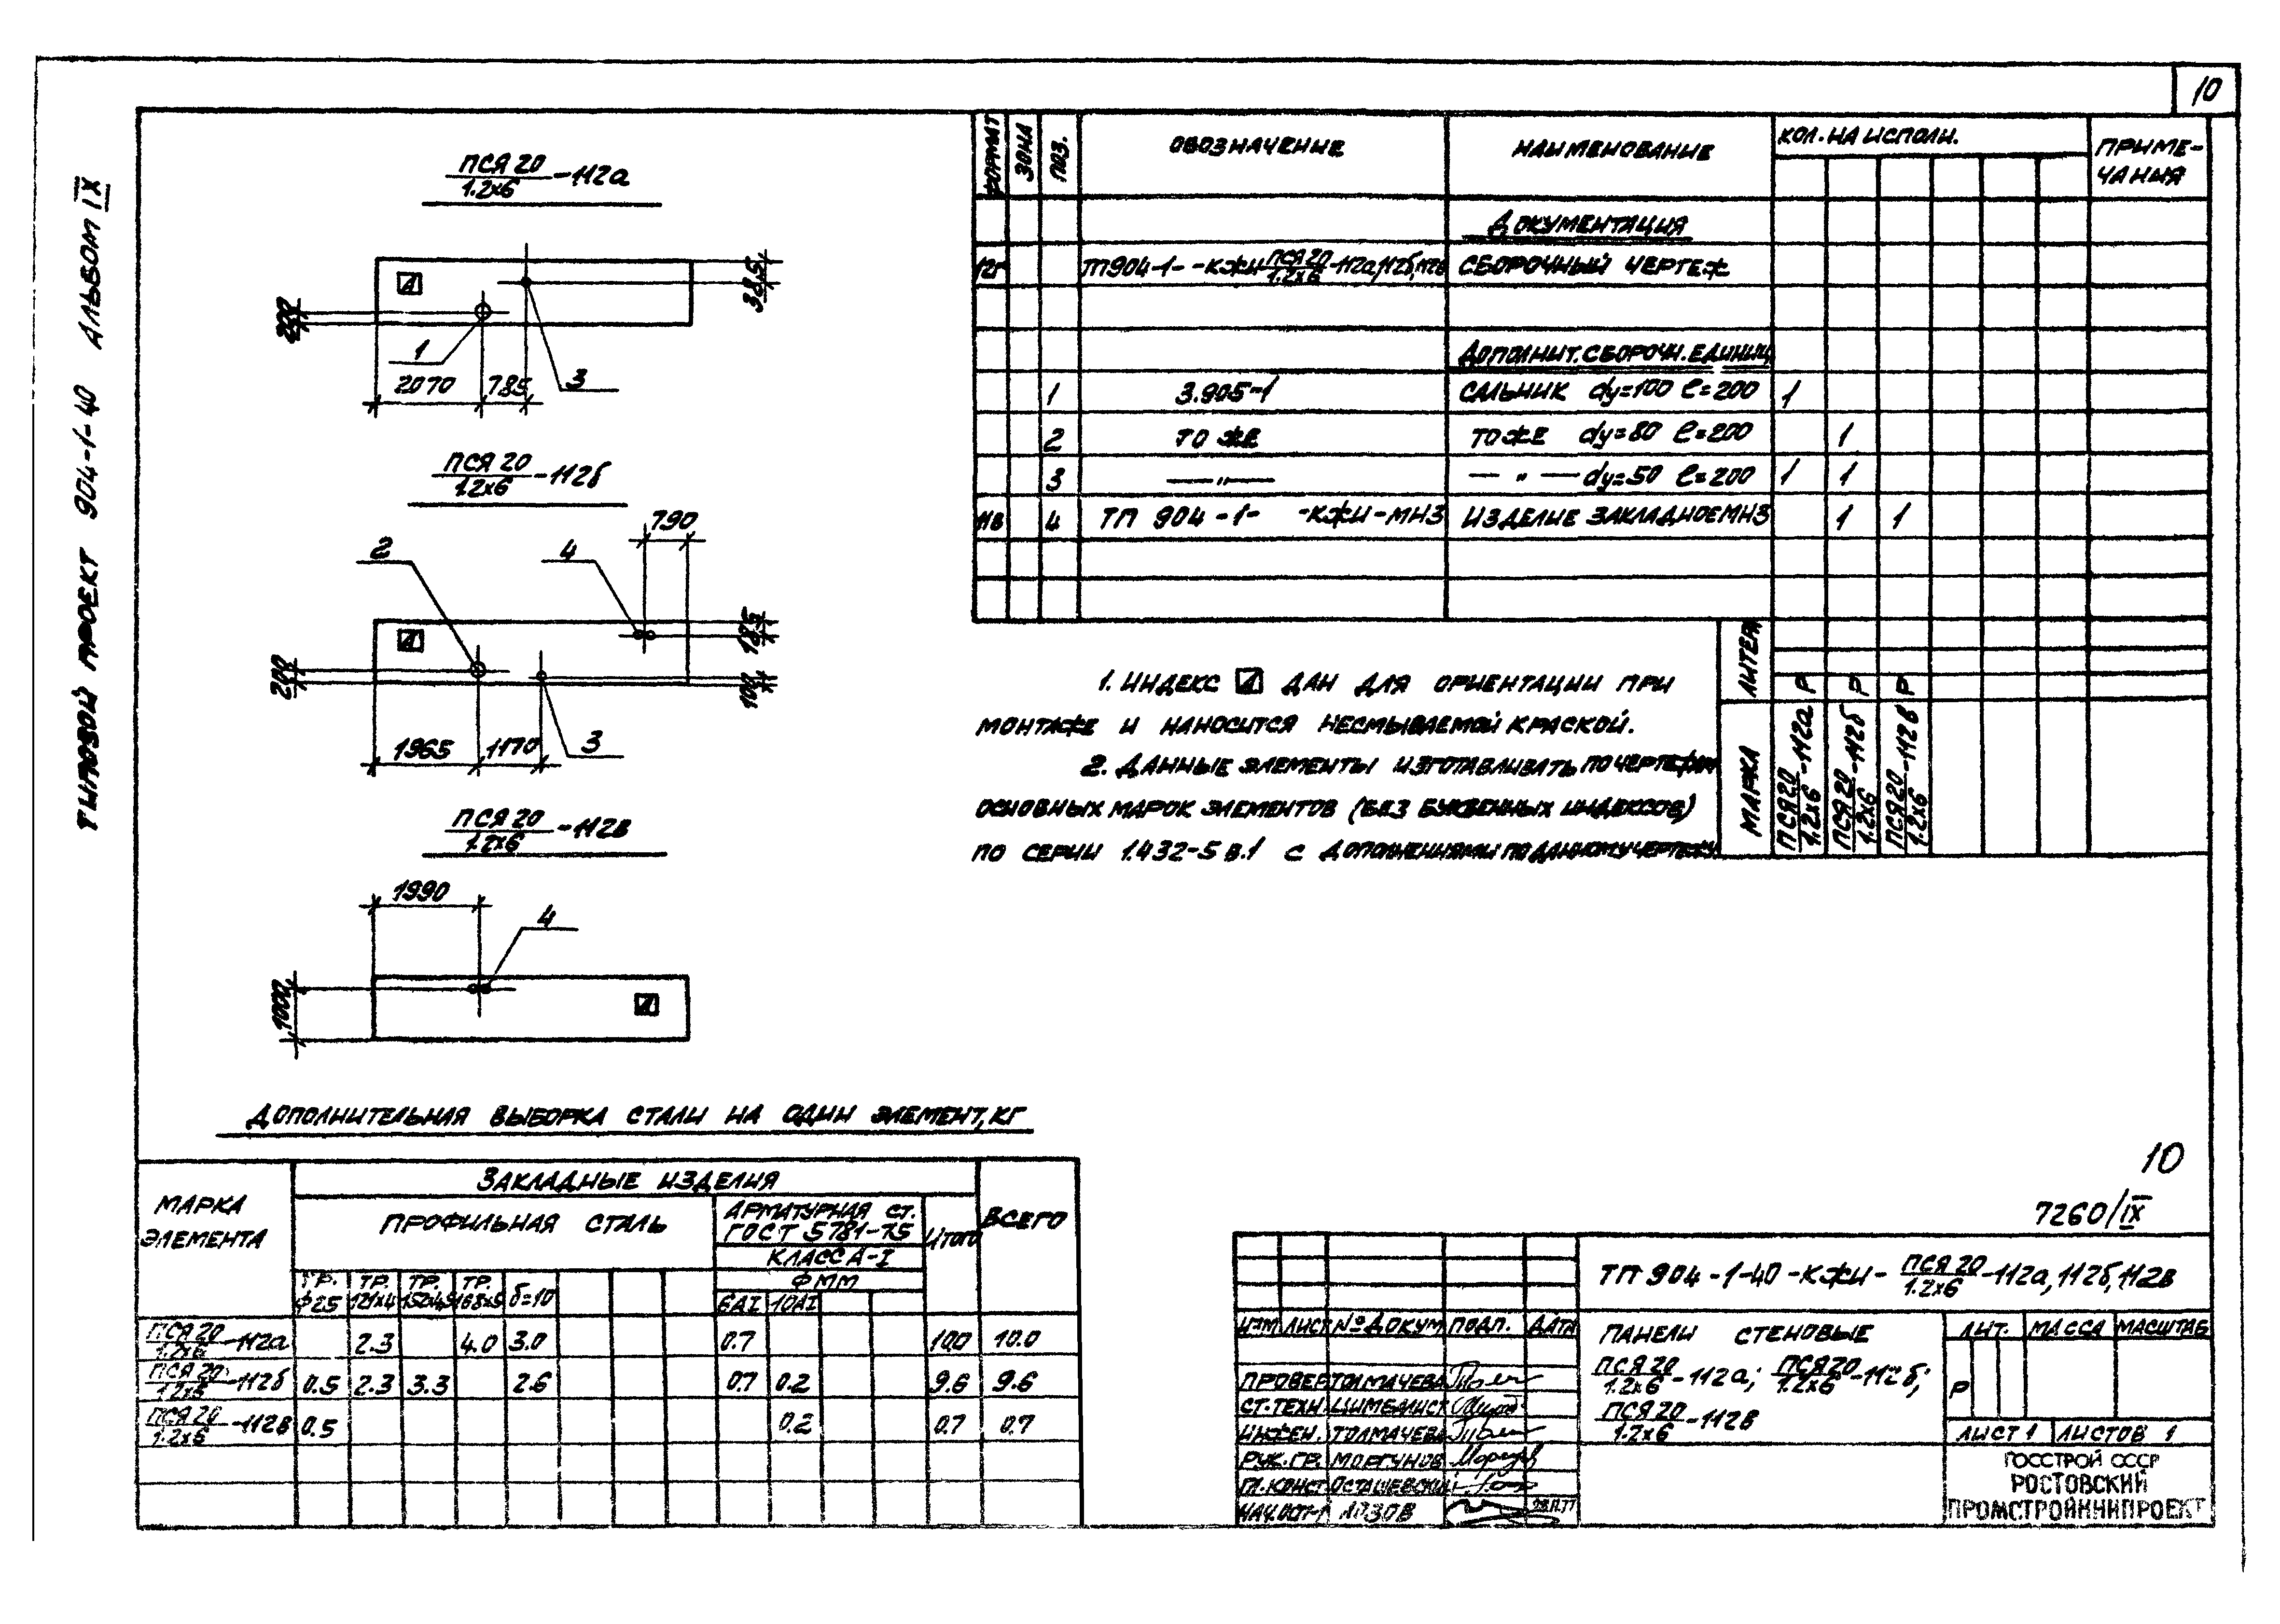 10
ТИПОВОЙ ПРОЕКТ 904-1-40 АЛЬБОМ IX
ПСЯ 20
1.2х6
-112а
1
3
2070
785
385
200
ПСЯ 20
1.2х6
-112б
790
2
4
185
200
100
1965
1170
3
ПСЯ 20
1.2х6
-112в
1990
4
1000
ФОРМАТ
ЗОНА
ПОЗ.
ОБОЗНАЧЕНИЕ
НАИМЕНОВАНИЕ
КОЛ. НА ИСПОЛН.
ПРИМЕ-
ЧАНИЯ
ДОКУМЕНТАЦИЯ
12г ТП904-1- -КЖИ ПСЯ 20/1.2х6 -112а,112б,112в СБОРОЧНЫЙ ЧЕРТЕЖ
ДОПОЛНИТ. СБОРОЧН. ЕДИНИЦ
1 3.905-1 САЛЬНИК dy=100 ℓ=200 1
2 ТО ЖЕ ТО ЖЕ dy=80 ℓ=200 1
3 —"— — " — dy=50 ℓ=200 1 1
11в 4 ТП 904-1- -КЖИ-МН3 ИЗДЕЛИЕ ЗАКЛАДНОЕ МН3 1 1
ЛИТЕРА
Р Р Р
МАРКА
ПСЯ 20/1.2х6 -112а
ПСЯ 20/1.2х6 -112б
ПСЯ 20/1.2х6 -112в
1. ИНДЕКС ДАН ДЛЯ ОРИЕНТАЦИИ ПРИ
МОНТАЖЕ И НАНОСИТСЯ НЕСМЫВАЕМОЙ КРАСКОЙ.
2. ДАННЫЕ ЭЛЕМЕНТЫ ИЗГОТАВЛИВАТЬ ПО ЧЕРТЕЖАМ
ОСНОВНЫХ МАРОК ЭЛЕМЕНТОВ (БЕЗ БУКВЕННЫХ ИНДЕКСОВ)
ПО СЕРИИ 1.432-5 в.1 С ДОПОЛНЕНИЯМИ ПО ДАННОМУ ЧЕРТЕЖУ
ДОПОЛНИТЕЛЬНАЯ ВЫБОРКА СТАЛИ НА ОДИН ЭЛЕМЕНТ, КГ
МАРКА
ЭЛЕМЕНТА
ЗАКЛАДНЫЕ ИЗДЕЛИЯ
ПРОФИЛЬНАЯ СТАЛЬ
АРМАТУРНАЯ СТ.
ГОСТ 5781-75
КЛАСС А-I
Ф ММ
ИТОГО
ВСЕГО
ТР. Ф25
ТР. 121х4
ТР. 152х4,5
ТР. 168х5
δ=10
6АI 10АI
ПСЯ 20/1.2х6 -112а 2.3 4.0 3.0 0.7 10.0 10.0
ПСЯ 20/1.2х6 -112б 0.5 2.3 3.3 2.6 0.7 0.2 9.6 9.6
ПСЯ 20/1.2х6 -112в 0.5 0.2 0.7 0.7
10
7260/IX
ТП 904-1-40-КЖИ- ПСЯ 20/1.2х6 -112а,112б,112в
ИЗМ ЛИСТ № ДОКУМ ПОДП. ДАТА
ПРОВЕР ТОЛМАЧЕВА
СТ. ТЕХН. ЦИМБАЛИСТ
ИНЖЕН. ТОЛМАЧЕВА
РУК. ГР. МОРГУНОВ
ГЛ. КОНСТ. ОСТАШЕВСКИЙ
НАЧ. ОТ
ПАНЕЛИ СТЕНОВЫЕ
ПСЯ 20/1.2х6 -112а; ПСЯ 20/1.2х6 -112б;
ПСЯ 20/1.2х6 -112в
ЛИТ. МАССА МАСШТАБ
Р
ЛИСТ 1 ЛИСТОВ 1
ГОССТРОЙ СССР
РОСТОВСКИЙ
ПРОМСТРОЙНИИПРОЕКТ